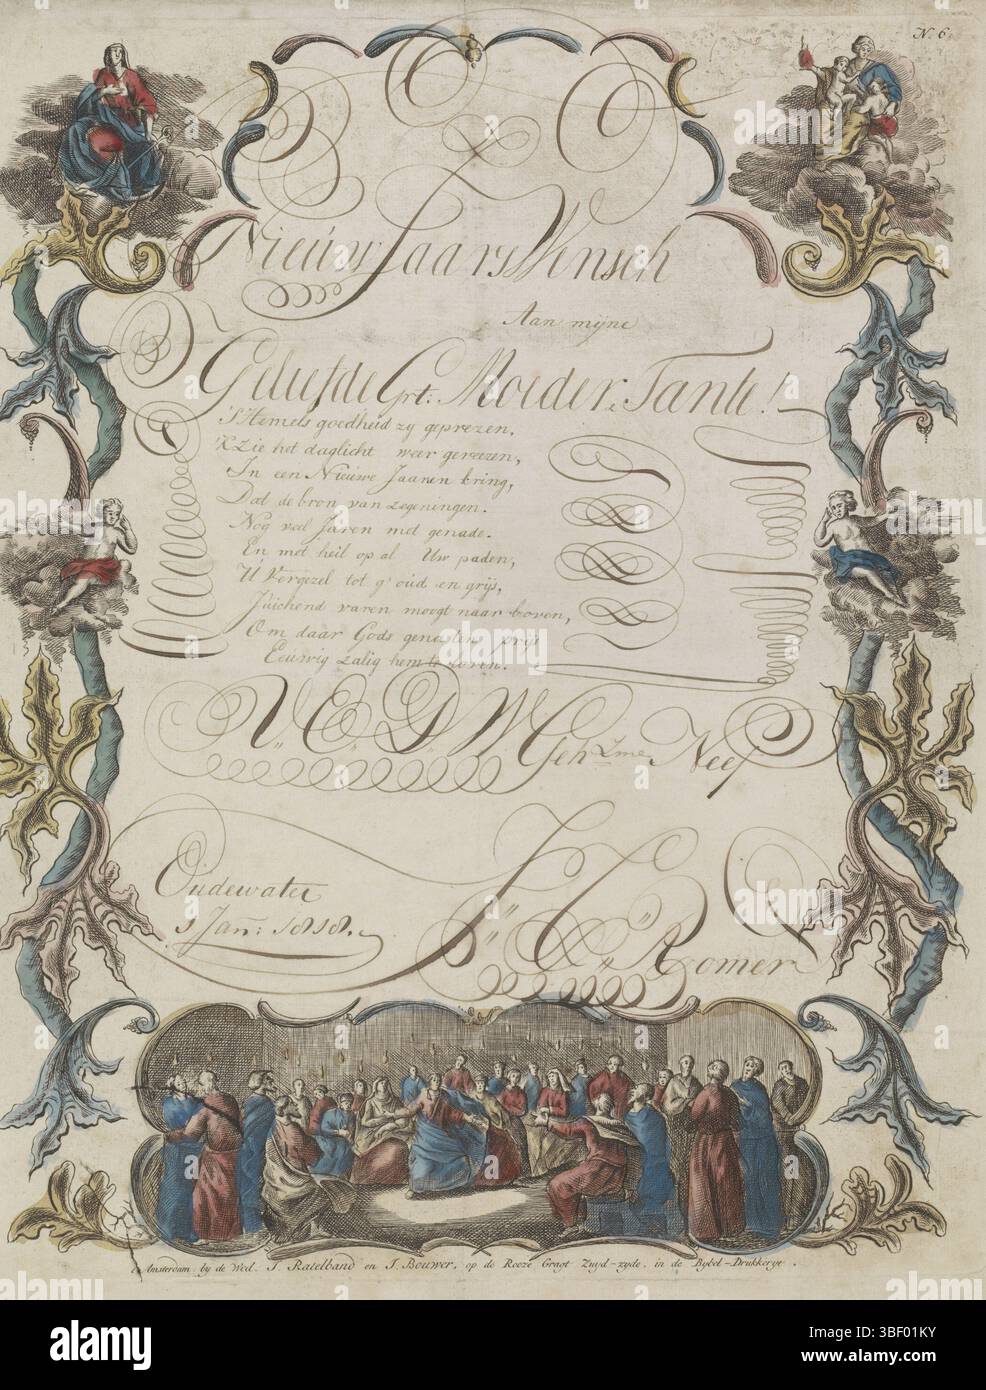 N. 6.
Nieuw Jaars Wensch
Aan mijne
Geliefde Grt: Moeder, Tante!
's Hemels goedheid zy geprezen,
'K Zie het daglicht weer gereezen,
In een Nieuwe Jaaren kring,
Dat de bron van zegeningen.
Nog veel Jaren met genade.
En met heil op al Uw paden,
U Vergezel tot g' oud en grijs,
Juichend varen moogt naar boven,
Om daar Gods genaden prijs
Eeuwig zalig hem te loven.
U,, E,, D,, W,, Geh:zme Neef
Oudewater
1 Jan: 1818.
J,, C,, Romer
Amsterdam, by de Wed. J. Ratelband en J. Bouwer, op de Rooze Gragt Zuyd-zyde, in de Bybel-Drukkerye.
alamy
Image ID: 3BF01KY
www.alamy.com